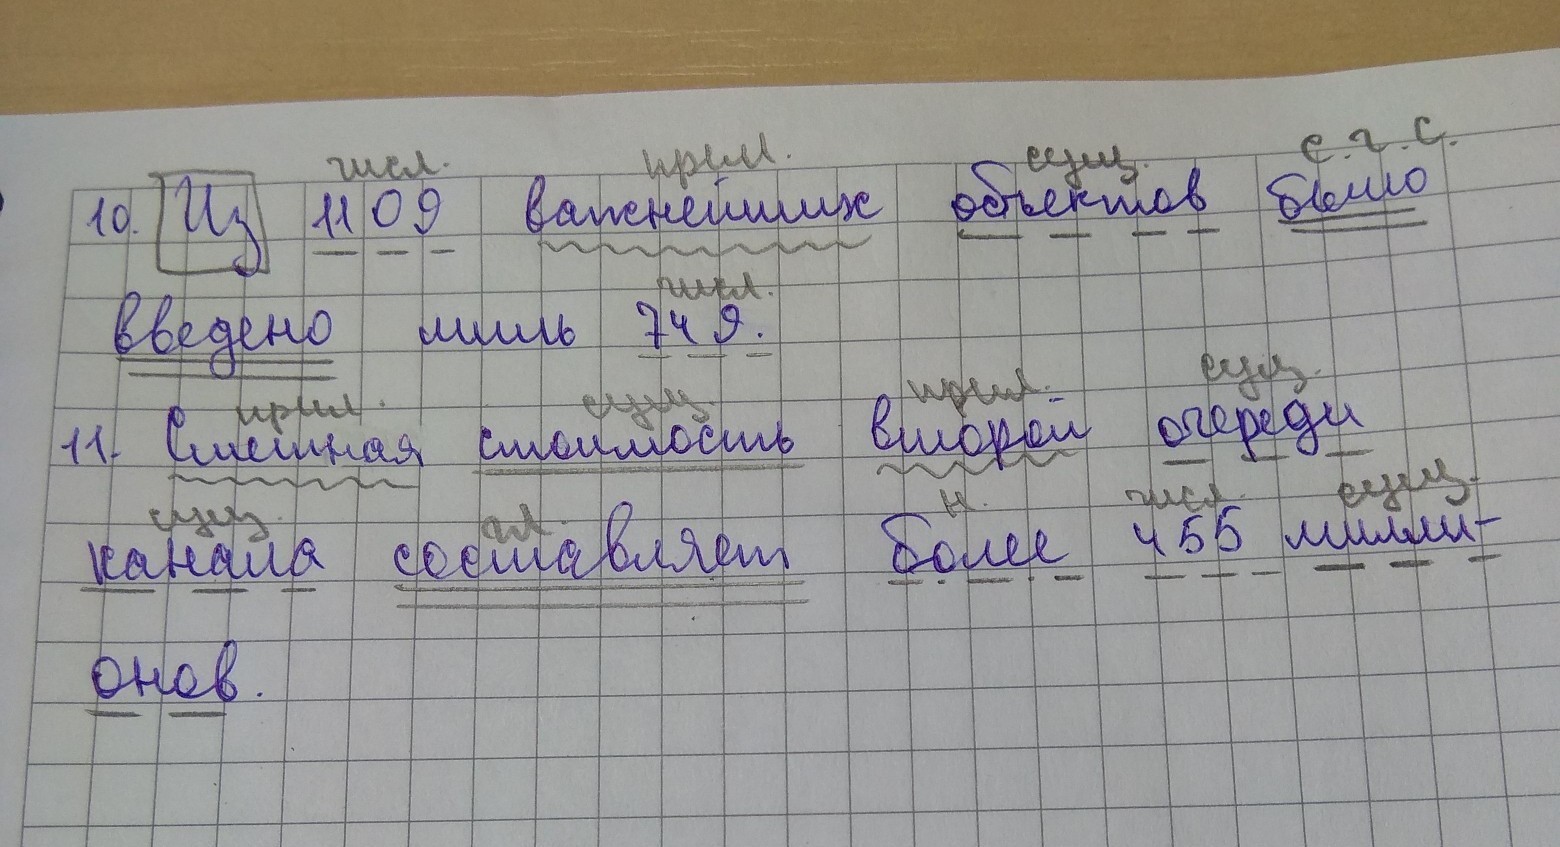 числ. прил. сущ. с.г.с.
10. Из 1109 важнейших объектов было
числ.
введено лишь 749.
прил. сущ. прил. сущ.
11. Сметная стоимость второй очереди
сущ. гл. н. числ. сущ.
канала составляет более 455 милли-
онов.